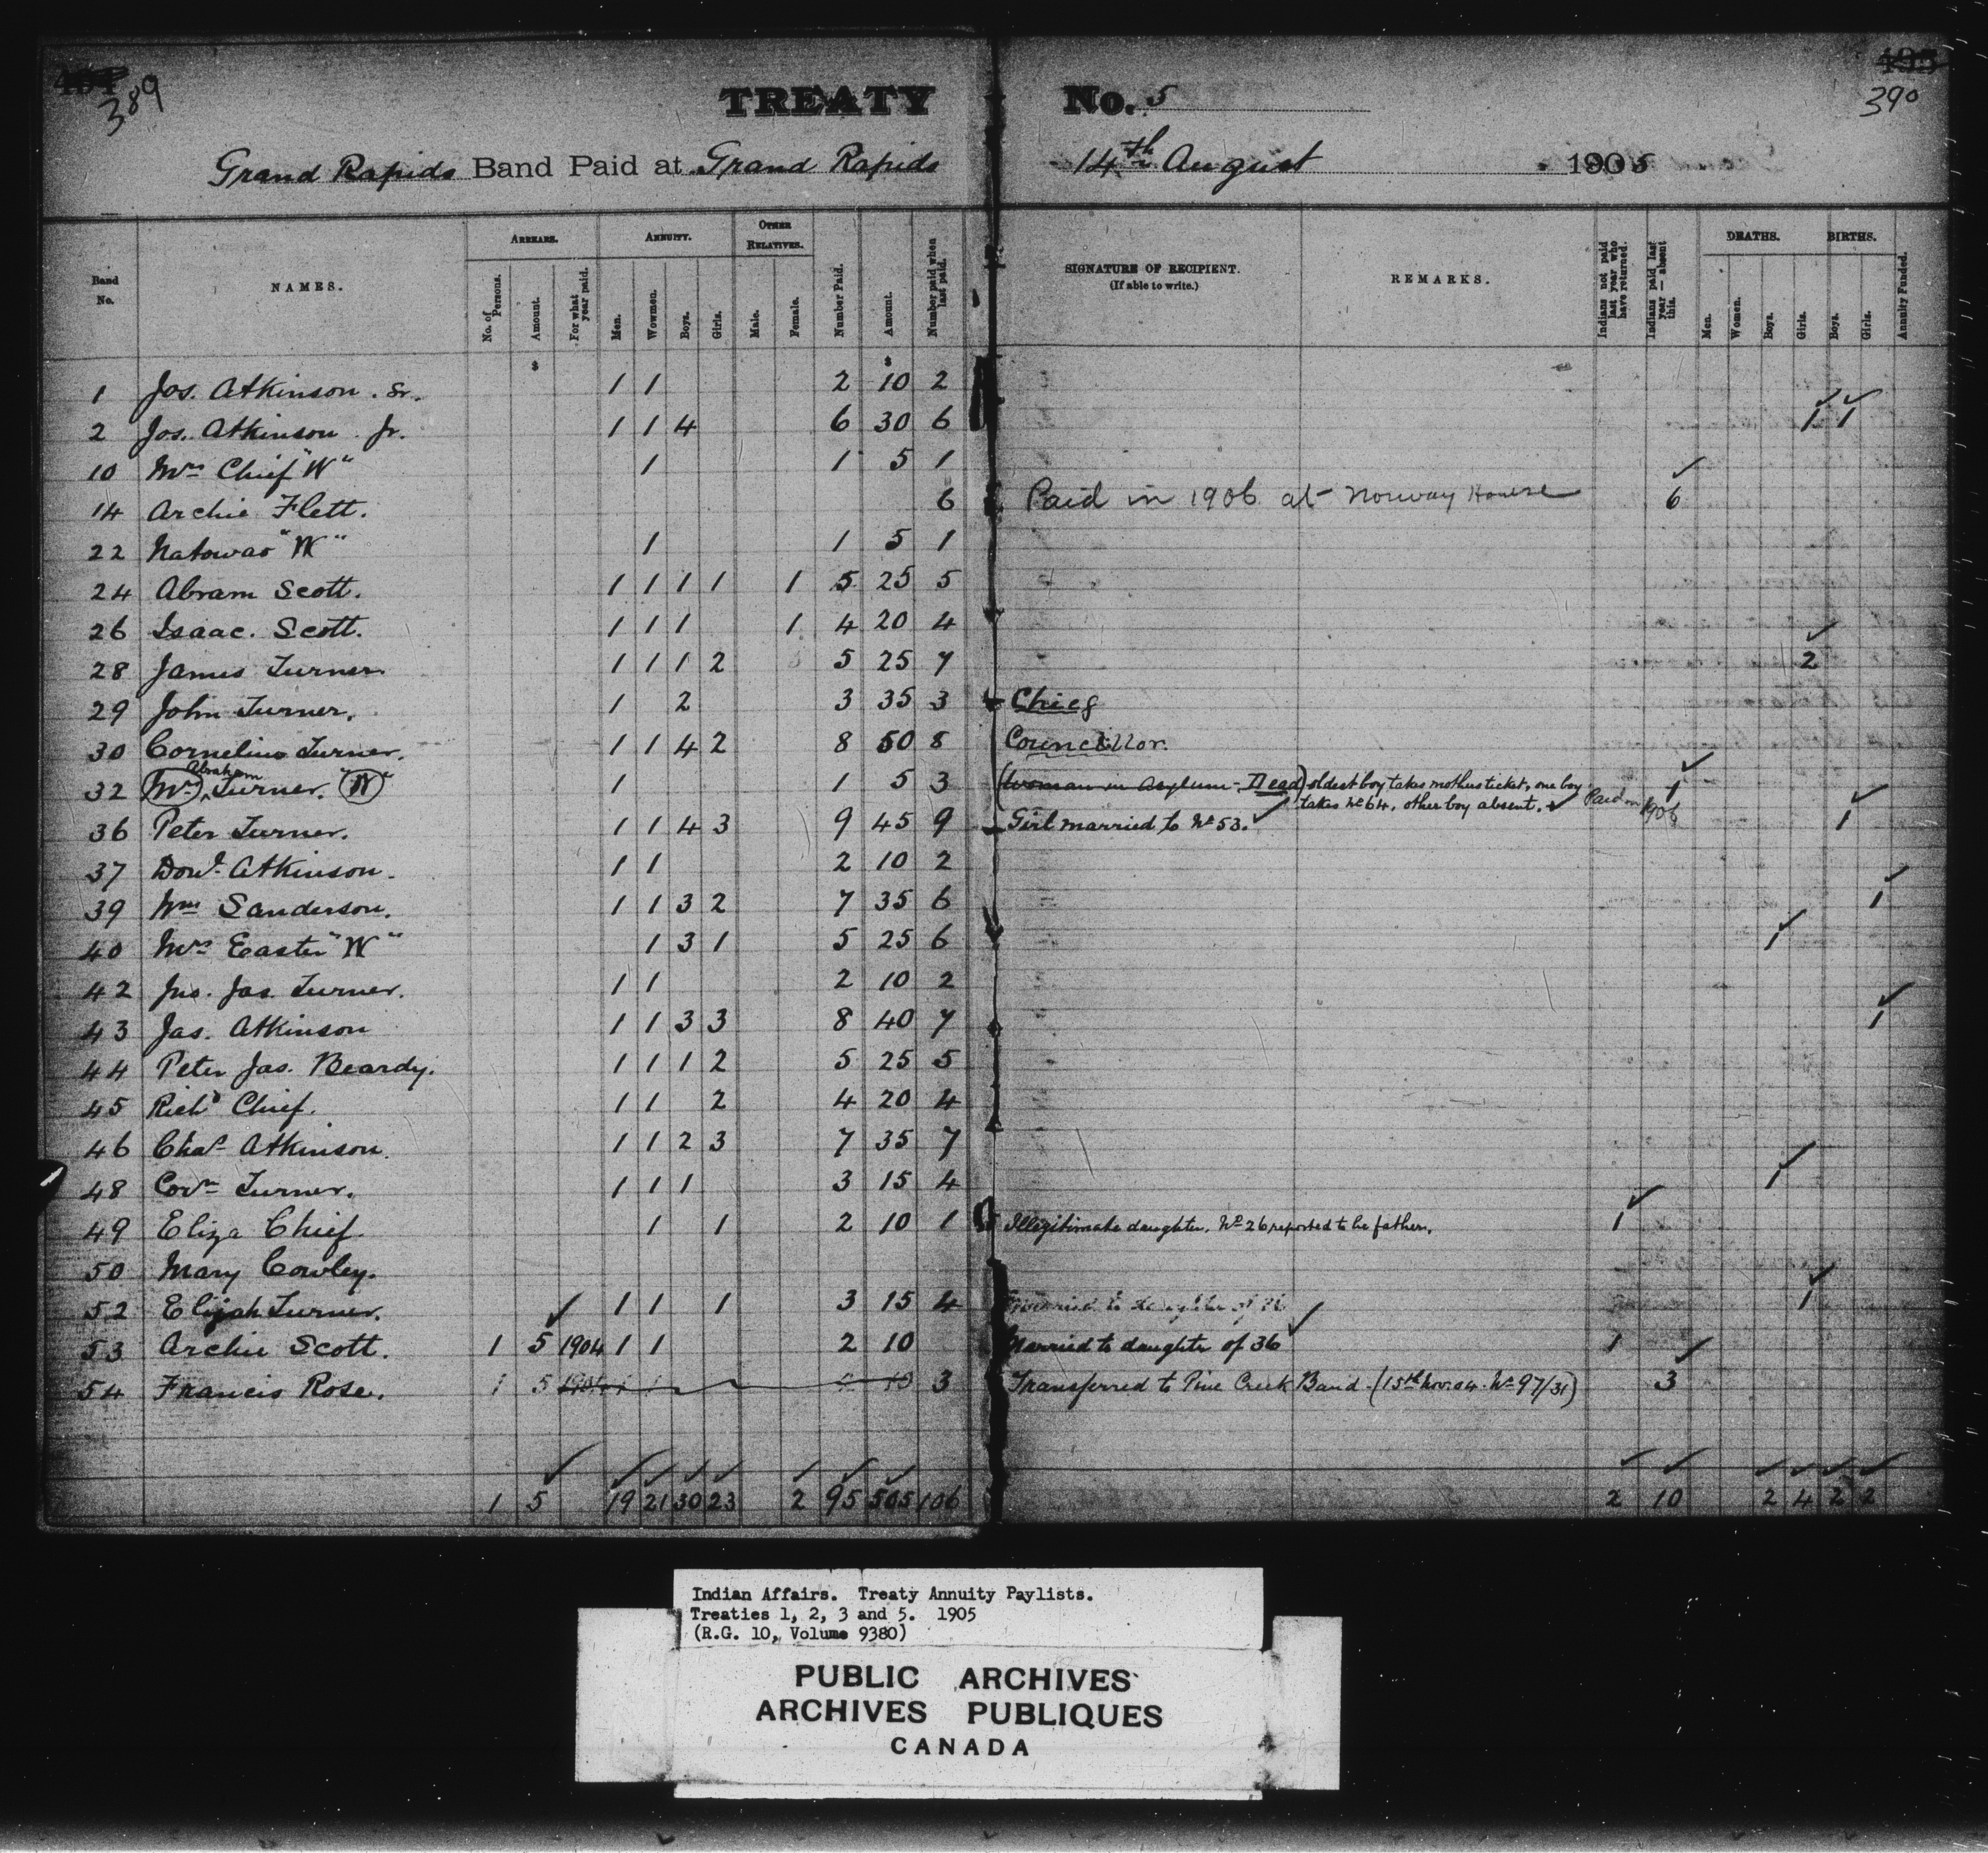 389
TREATY No. 5
390
Grand Rapids Band Paid at Grand Rapids 14th August 1905
Band No. NAMES. ARREARS. ANNUITY. OTHER RELATIVES. Number Paid. Amount. Number paid when last paid. SIGNATURE OF RECIPIENT. (If able to write.) REMARKS. Indians not paid last year who have returned. Indians paid last year — absent this. DEATHS. BIRTHS. Annuity Funded.
No. of Persons. Amount. For what year paid. Men. Wowmen. Boys. Girls. Male. Female. Men. Women. Boys. Girls. Boys. Girls.
$ $
1 Jos. Atkinson. Sr. 1 1 2 10 2
2 Jos. Atkinson Jr. 1 1 4 6 30 6 1 1
10 Mrs Chief "W" 1 1 5 1
14 Archie Flett. 6 Paid in 1906 at Norway House 6
22 Natowao "W" 1 1 5 1
24 Abram Scott. 1 1 1 1 1 5 25 5
26 Isaac. Scott. 1 1 1 1 4 20 4
28 James Turner 1 1 1 2 5 25 7 2
29 John Turner. 1 2 3 35 3 Chief
30 Cornelius Turner. 1 1 4 2 8 50 8 Councillor.
32 Mrs Abraham Turner. "W" 1 1 5 3 (Woman in Asylum - Dead) oldest boy takes mothers ticket, one boy 1
takes No 64, other boy absent. Paid in 1906
36 Peter Turner. 1 1 4 3 9 45 9 Girl married to No 53. 1
37 Dond. Atkinson. 1 1 2 10 2
39 Wm Sanderson. 1 1 3 2 7 35 6 1
40 Mrs Easter "W" 1 3 1 5 25 6 1
42 Jno. Jas. Turner. 1 1 2 10 2
43 Jas. Atkinson 1 1 3 3 8 40 7 1
44 Peter Jas. Beardy. 1 1 1 2 5 25 5
45 Richd Chief. 1 1 2 4 20 4
46 Chas Atkinson. 1 1 2 3 7 35 7
48 Corns Turner. 1 1 1 3 15 4 1
49 Eliza Chief. 1 1 2 10 1 Illegitimate daughter. No 26 reported to be father. 1
50 Mary Cowley.
52 Elijah Turner. 1 1 1 3 15 4 1
53 Archie Scott. 1 5 1904 1 1 2 10 Married to daughter of 36 1
54 Francis Rose. 1 5 1904 1 1 3 Transferred to Pine Creek Band. (15th Nov. 04. No 97/31) 3
1 5 19 21 30 23 2 95 505 106 2 10 2 4 2 2
Indian Affairs. Treaty Annuity Paylists.
Treaties 1, 2, 3 and 5. 1905
(R.G. 10, Volume 9380)
PUBLIC ARCHIVES
ARCHIVES PUBLIQUES
CANADA